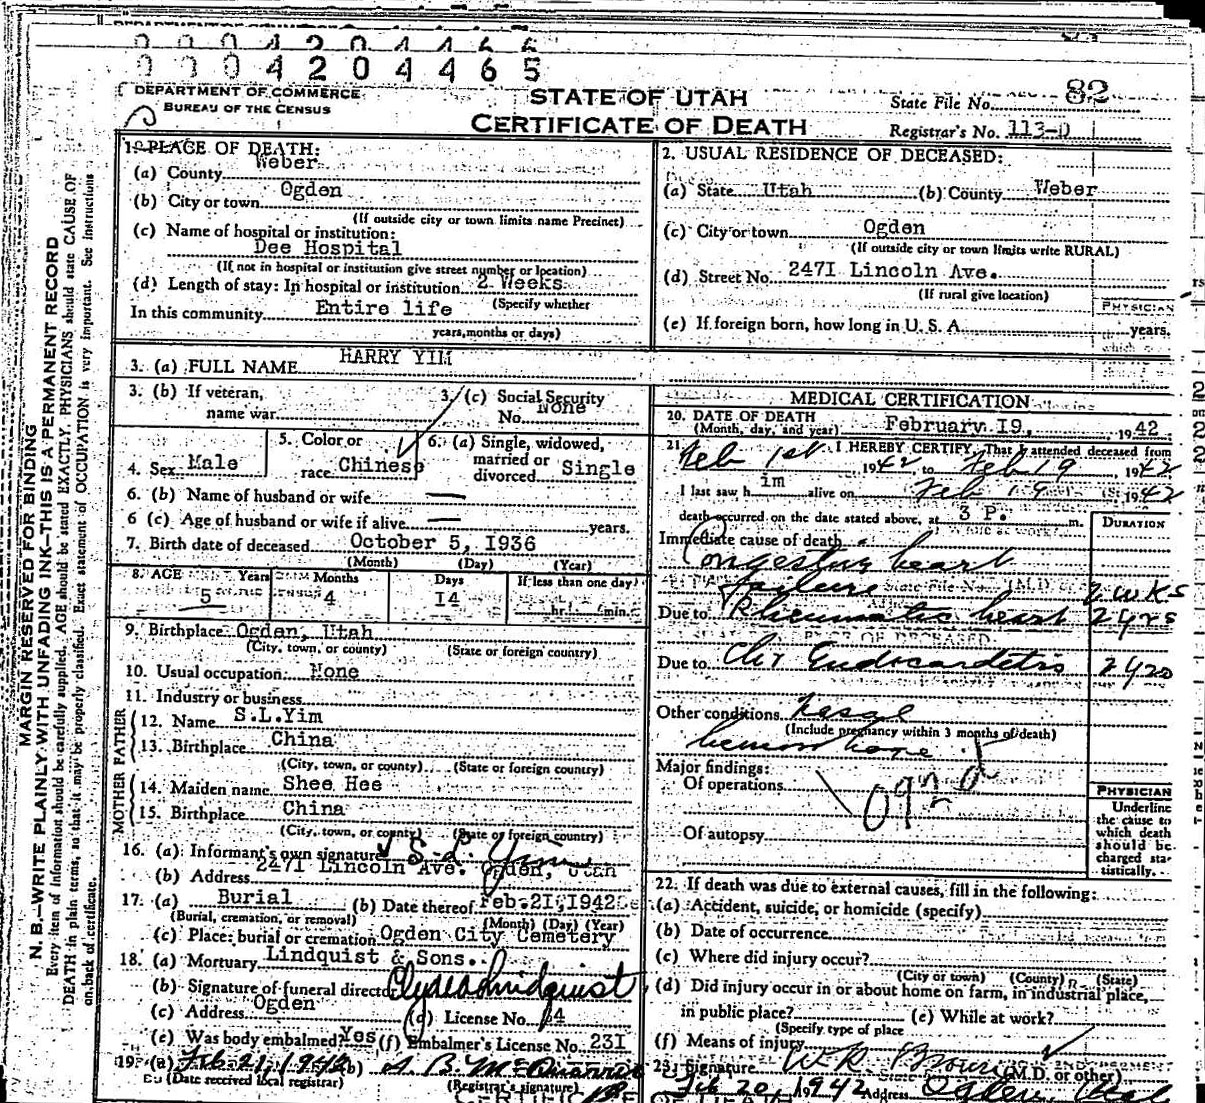 0 0 0 4 2 0 4 4 6 5
DEPARTMENT OF COMMERCE
BUREAU OF THE CENSUS
STATE OF UTAH
CERTIFICATE OF DEATH
State File No. 82
Registrar's No. 113-D
1. PLACE OF DEATH:
(a) County Weber
(b) City or town Ogden
(If outside city or town limits name Precinct)
(c) Name of hospital or institution:
Dee Hospital
(If not in hospital or institution give street number or location)
(d) Length of stay: In hospital or institution 2 Weeks
(Specify whether
In this community Entire life
years, months or days)
2. USUAL RESIDENCE OF DECEASED:
(a) State Utah (b) County Weber
(c) City or town Ogden
(If outside city or town limits write RURAL)
(d) Street No. 2471 Lincoln Ave.
(If rural give location)
PHYSICIAN
(e) If foreign born, how long in U. S. A. years.
3. (a) FULL NAME HARRY YIM
3. (b) If veteran,
name war
3. (c) Social Security
No. None
4. Sex Male
5. Color or
race Chinese
6. (a) Single, widowed,
married or
divorced Single
6. (b) Name of husband or wife —
6 (c) Age of husband or wife if alive — years.
7. Birth date of deceased October 5, 1936
(Month) (Day) (Year)
8. AGE Years Months Days If less than one day
5 4 14 hr. min.
9. Birthplace Ogden, Utah
(City, town, or county) (State or foreign country)
10. Usual occupation: None
11. Industry or business
FATHER
12. Name S.L.Yim
13. Birthplace China
(City, town, or county) (State or foreign country)
MOTHER
14. Maiden name Shee Hee
15. Birthplace China
(City, town, or county) (State or foreign country)
16. (a) Informant's own signature S. L. Yim
(b) Address 2471 Lincoln Ave. Ogden, Utah
17. (a) Burial (b) Date thereof Feb.21,1942
(Burial, cremation, or removal) (Month) (Day) (Year)
(c) Place: burial or cremation Ogden City Cemetery
18. (a) Mortuary Lindquist & Sons.
(b) Signature of funeral director Clyde Lindquist
(c) Address Ogden (d) License No. 14
(e) Was body embalmed? Yes (f) Embalmer's License No. 231
19. (a) Feb 21, 1942 (b)
(Date received local registrar) (Registrar's signature)
MEDICAL CERTIFICATION
20. DATE OF DEATH
(Month, day, and year) February 19, 1942
21. I HEREBY CERTIFY, That I attended deceased from
Feb 1st 1942 to Feb 19 1942
I last saw h im alive on Feb 19 1942
death occurred on the date stated above, at 3 P. m.
DURATION
Immediate cause of death
Congestive heart
failure 2 wks
Due to Rheumatic heart 2 yrs
Due to Endocardetis 2 yrs
Other conditions Nasal
(Include pregnancy within 3 months of death)
hemorrhage
Major findings:
Of operations
Of autopsy
PHYSICIAN
Underline
the cause to
which death
should be
charged sta-
tistically.
22. If death was due to external causes, fill in the following:
(a) Accident, suicide, or homicide (specify)
(b) Date of occurrence
(c) Where did injury occur?
(City or town) (County) (State)
(d) Did injury occur in or about home on farm, in industrial place,
in public place? (e) While at work?
(Specify type of place
(f) Means of injury
23. Signature (M.D. or other)
Feb 20, 1942 Address Ogden, Utah
MARGIN RESERVED FOR BINDING
N. B.—WRITE PLAINLY WITH UNFADING INK—THIS IS A PERMANENT RECORD
Every item of information should be carefully supplied. AGE should be stated EXACTLY. PHYSICIANS should state CAUSE OF
DEATH in plain terms, so that it may be properly classified. Exact statement of OCCUPATION is very important. See instructions
on back of certificate.